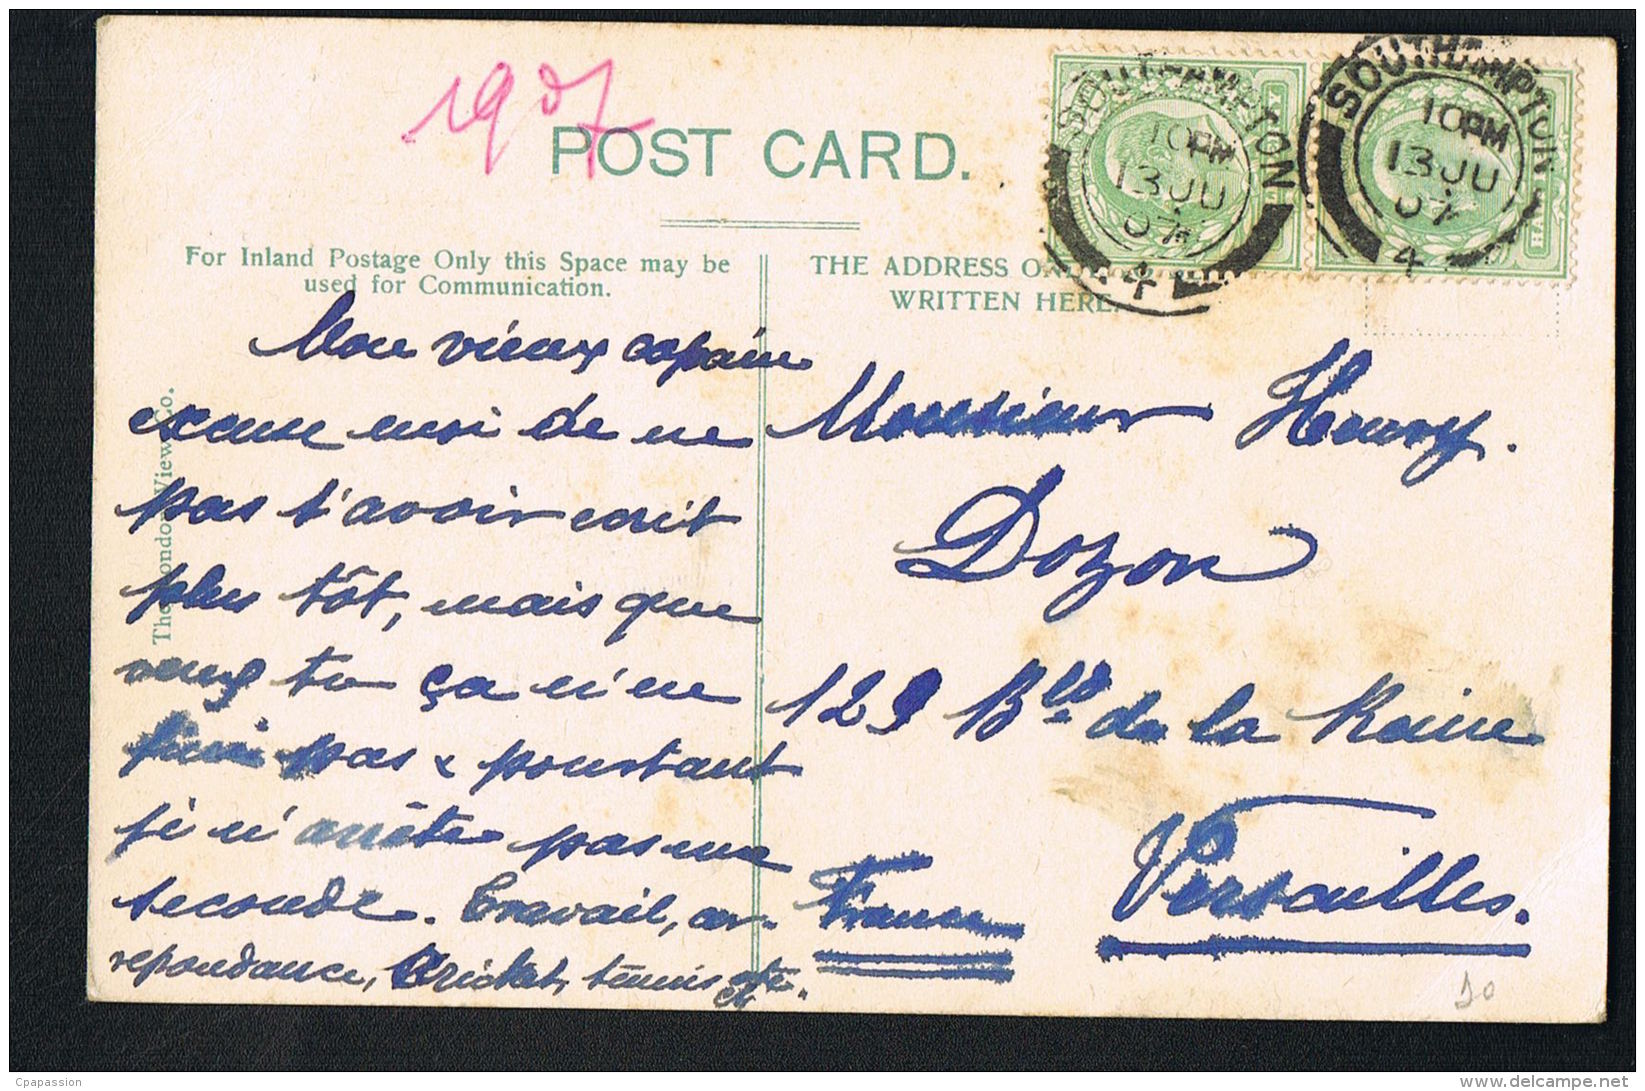 1907
POST CARD.
SOUTHAMPTON
10 PM
13 JU
07
4
SOUTHAMPTON
10 PM
13 JU
07
4
For Inland Postage Only this Space may be
used for Communication.
THE ADDRESS ONLY
WRITTEN HERE.
The London View Co.
Mon vieux copain
excuse moi de ne
pas t'avoir écrit
plus tôt, mais que
veux tu ça n'en
fini pas & pourtant
je n'arrête pas une
seconde. Travail, cor-
repondance, Cricket, tennis etc.
Monsieur Henry.
Dozon
129 Bld de la Reine
Versailles.
France
30
Cpapassion
www.delcampe.net